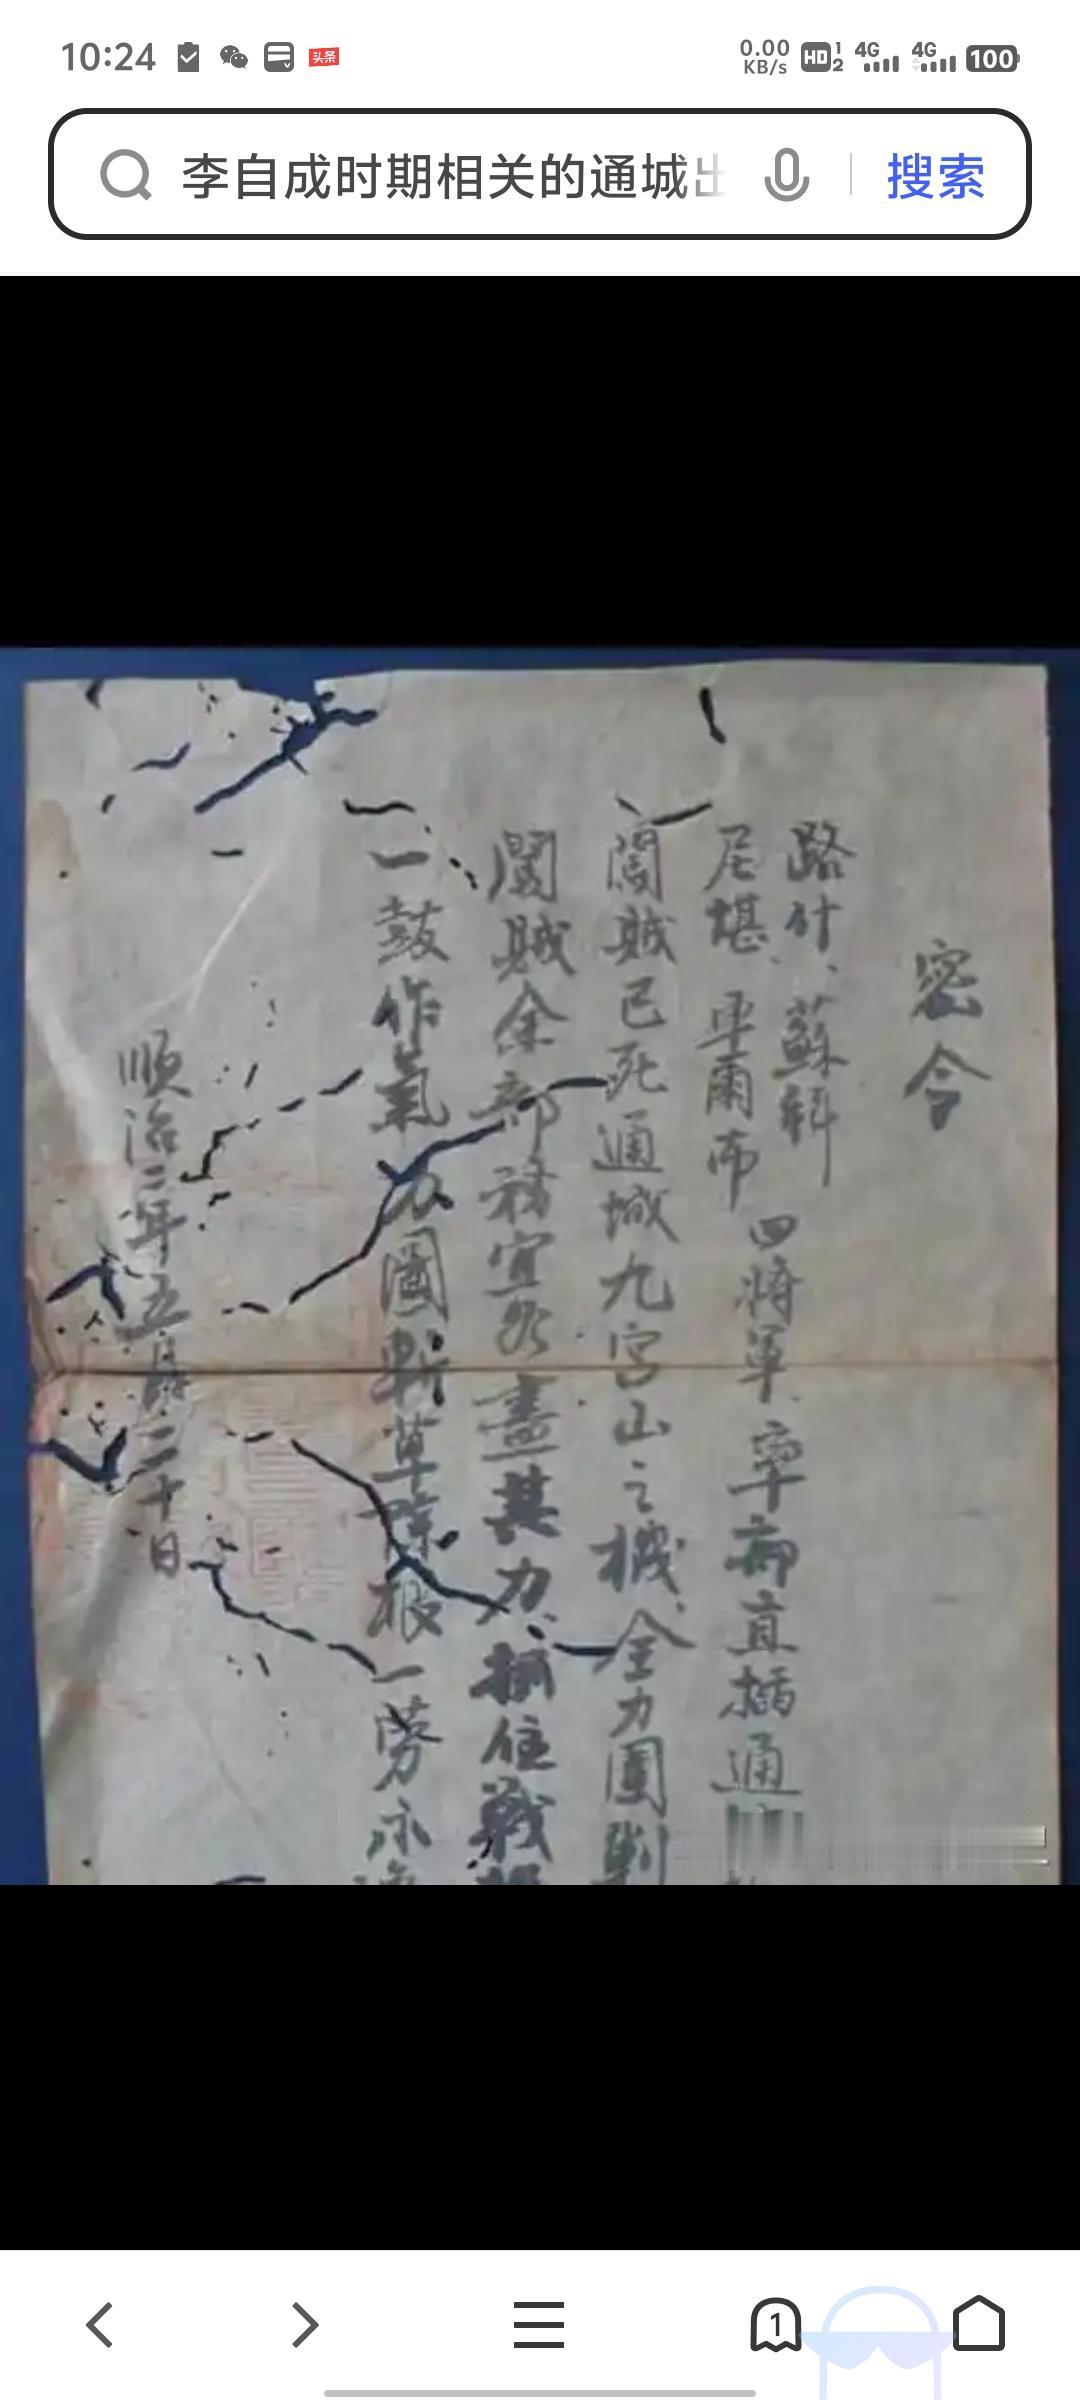 10:24
头条
0.00
KB/s
HD
1
2
4G
4G
100
李自成时期相关的通城出
搜索
密令
路什、蘇科
尼堪、车爾布
四将軍、率部直插通
闖贼已死通城九宮山之機、全力圍剿
闖賊余部務宜 盡其力、抓住戰
一鼓作氣 力圖斬草除根一劳永
順治三年五月 二十日
1